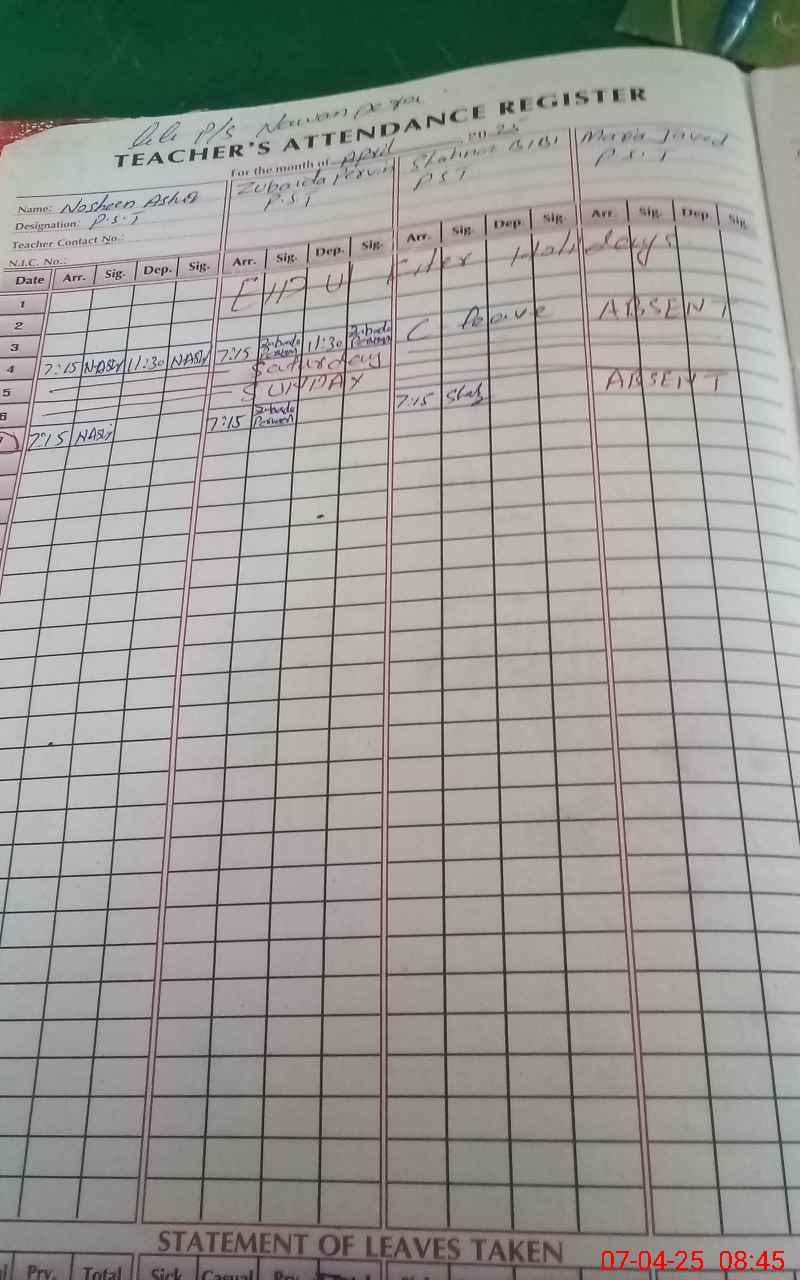 P/S Nawan pexa
TEACHER'S ATTENDANCE REGISTER
For the month of April 2025
Name: Nosheen Ashiq Zubaida Perven Shahnaz BiBi Maria Javed
Designation: P.S.T P.S.T PST P.S.T
Teacher Contact No.:
N.I.C. No.:
Date Arr. Sig. Dep. Sig. Arr. Sig. Dep. Sig. Arr. Sig. Dep. Sig. Arr. Sig. Dep. Sig.
1 EID U Fiter Holidays
2
3
4 7:15 NAShi 11:30 NAShi 7:15 Zubaida Perveen 11:30 Zubaida Perveen C leave ABSENT
5 Saturday
6 SUNDAY
7 7:15 NAShi 7:15 Zubaida Perveen 7:15 Shah ABSENT
STATEMENT OF LEAVES TAKEN
Prv. Total Sick Casual Prv.
07-04-25 08:45